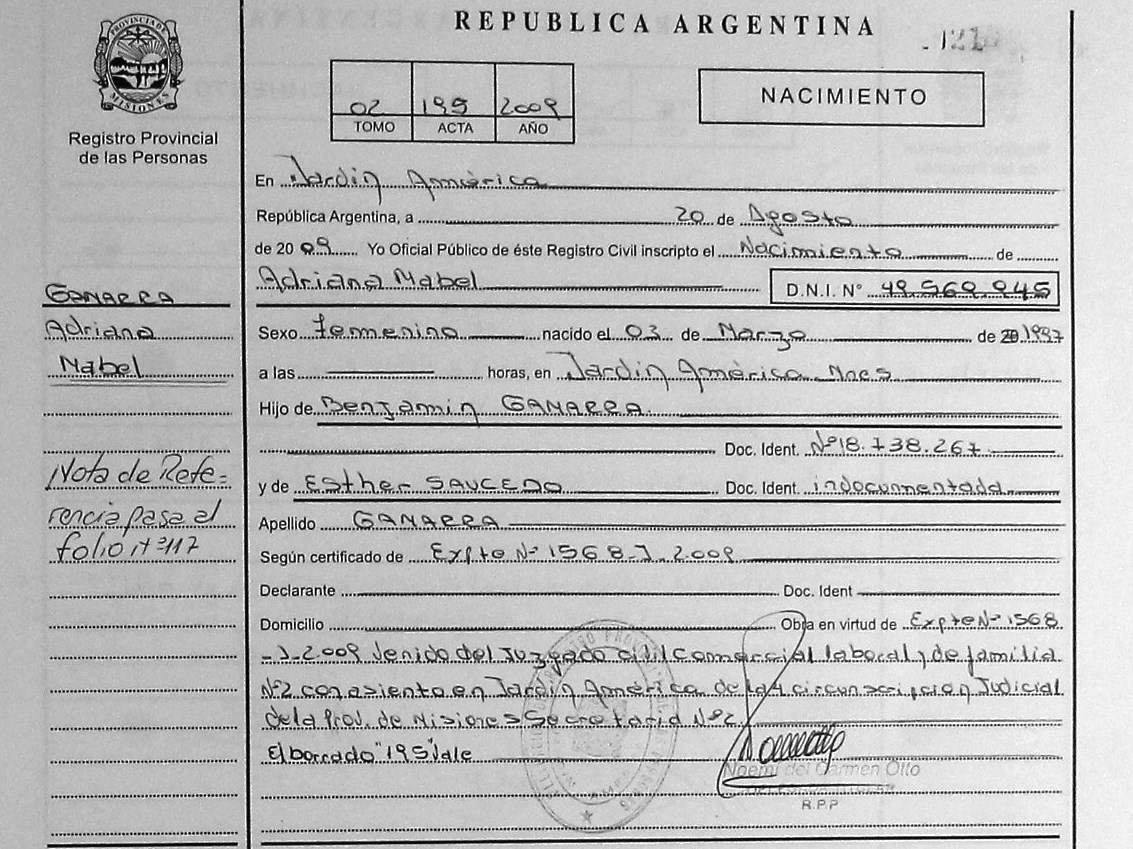 REPUBLICA ARGENTINA
PROVINCIA DE
MISIONES
Registro Provincial
de las Personas
02 195 2009
TOMO ACTA AÑO
NACIMIENTO
En Jardin América
República Argentina, a 20 de Agosto
de 20 09 Yo Oficial Público de éste Registro Civil inscripto el Nacimiento de
Adriana Mabel D.N.I. N° 49.569.945
GAMARRA
Adriana
Mabel
Sexo Femenino nacido el 03 de Marzo de 20 1997
a las horas, en Jardin América Mnes
Hijo de Benjamin GAMARRA
Doc. Ident. N° 18.738.267
y de Esther SAUCEDO Doc. Ident. indocumentada
Nota de Refe=
rencia pasa al
folio n° 117
Apellido GAMARRA
Según certificado de Expte N° 1568-J-2.009
Declarante Doc. Ident
Domicilio Obra en virtud de Expte N° 1568
-J-2.009 Venido del Juzgado civil Comercial laboral y de familia
N°2 con asiento en Jardin América de la 4 circunscripcion Judicial
de la Prov. de Misiones Secretaria N°2
El borrado "195" Vale
Noemi del Carmen Otto
R.P.P